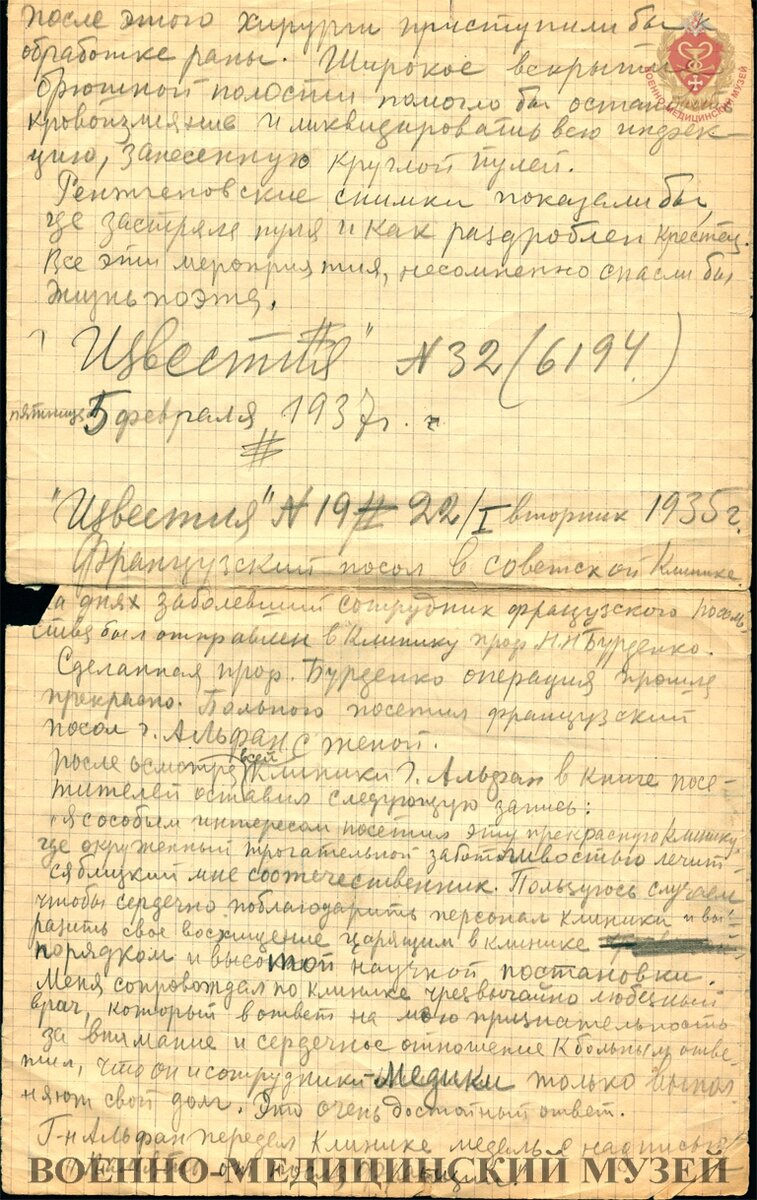 после этого хирурги приступили бы к
обработке раны. Широкое вскрытие
брюшной полости помогло бы остановить
кровоизлияние и ликвидировать всю инфек-
цию, занесенную круглой пулей.
Рентгеновские снимки показали бы,
где застряла пуля и как раздроблен крестец.
Все эти мероприятия, несомненно спасли бы
жизнь поэта.
"Известия" №32 (6194)
пятница 5 февраля 1937г.
"Известия" №19 22/I вторник 1935г.
Французский посол в советской клинике.
На днях заболевший сотрудник французского посоль-
ства был отправлен в клинику проф. Н.Н Бурденко.
Сделанная проф. Бурденко операция прошла
прекрасно. Больного посетил французский
посол г. Альфан с женой.
После осмотра всей клиники г. Альфан в книге посе-
тителей оставил следующую запись:
"Я с особым интересом посетил эту прекрасную клинику,
где окруженный трогательной заботливостью лечит
ся близкий мне соотечественник. Пользуюсь случаем
чтобы сердечно поблагодарить персонал клиники и вы-
разить свое восхищение царящим в клинике
порядком и высотой научной постановки.
Меня сопровождал по клинике чрезвычайно любезный
врач, который в ответ на мою признательность
за внимание и сердечное отношение к больным отве-
тил, что он и сотрудники медики только выпол
няют свой долг. Это очень достойный ответ.
Г-н Альфан передал клинике медаль с надписью
ВОЕННО-МЕДИЦИНСКИЙ МУЗЕЙ
ВОЕННО-МЕДИЦИНСКИЙ МУЗЕЙ